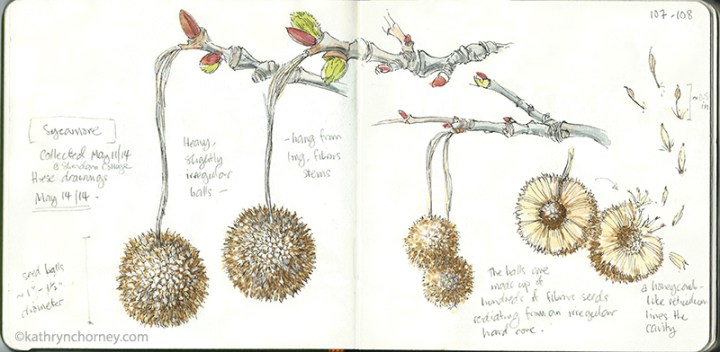 107-108
[Sycamore]
Collected May 11/14
@
these drawings
May 14/14.
Heavy,
slightly
irregular
balls –
– hang from
long, fibrous
stems
seed balls
diameter
The balls are
made up of
hundreds of fibrous seeds
radiating from an irregular
hard core.
a honeycomb-
like
lines the
cavity
©kathrynchorney.com